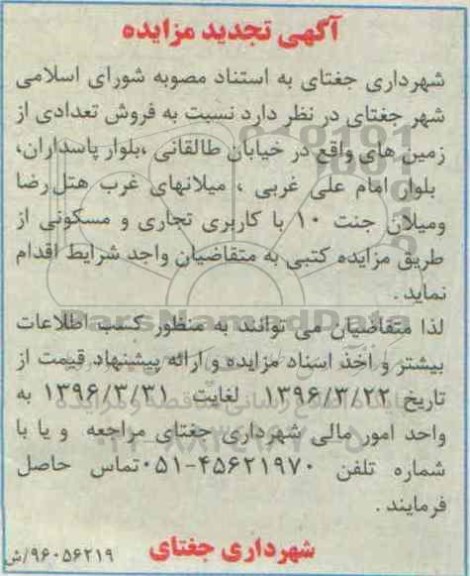 آگهی تجدید مزایده
شهرداری جغتای به استناد مصوبه شورای اسلامی
شهر جغتای در نظر دارد نسبت به فروش تعدادی از
زمین های واقع در خیابان طالقانی ،بلوار پاسداران،
بلوار امام علی غربی ، میلانهای غرب هتل رضا
ومیلان جنت ۱۰ با کاربری تجاری و مسکونی از
طریق مزایده کتبی به متقاضیان واجد شرایط اقدام
نماید .
لذا متقاضیان می توانند به منظور کسب اطلاعات
بیشتر و اخذ اسناد مزایده و ارائه پیشنهاد قیمت از
تاریخ ۱۳۹۶/۳/۲۲ لغایت ۱۳۹۶/۳/۳۱ به
واحد امور مالی شهرداری جغتای مراجعه و یا با
شماره تلفن ۴۵۶۲۱۹۷۰-۰۵۱ تماس حاصل
فرمایند .
شهرداری جغتای
۹۶۰۵۶۲۱۹/ش
ParsNamadData